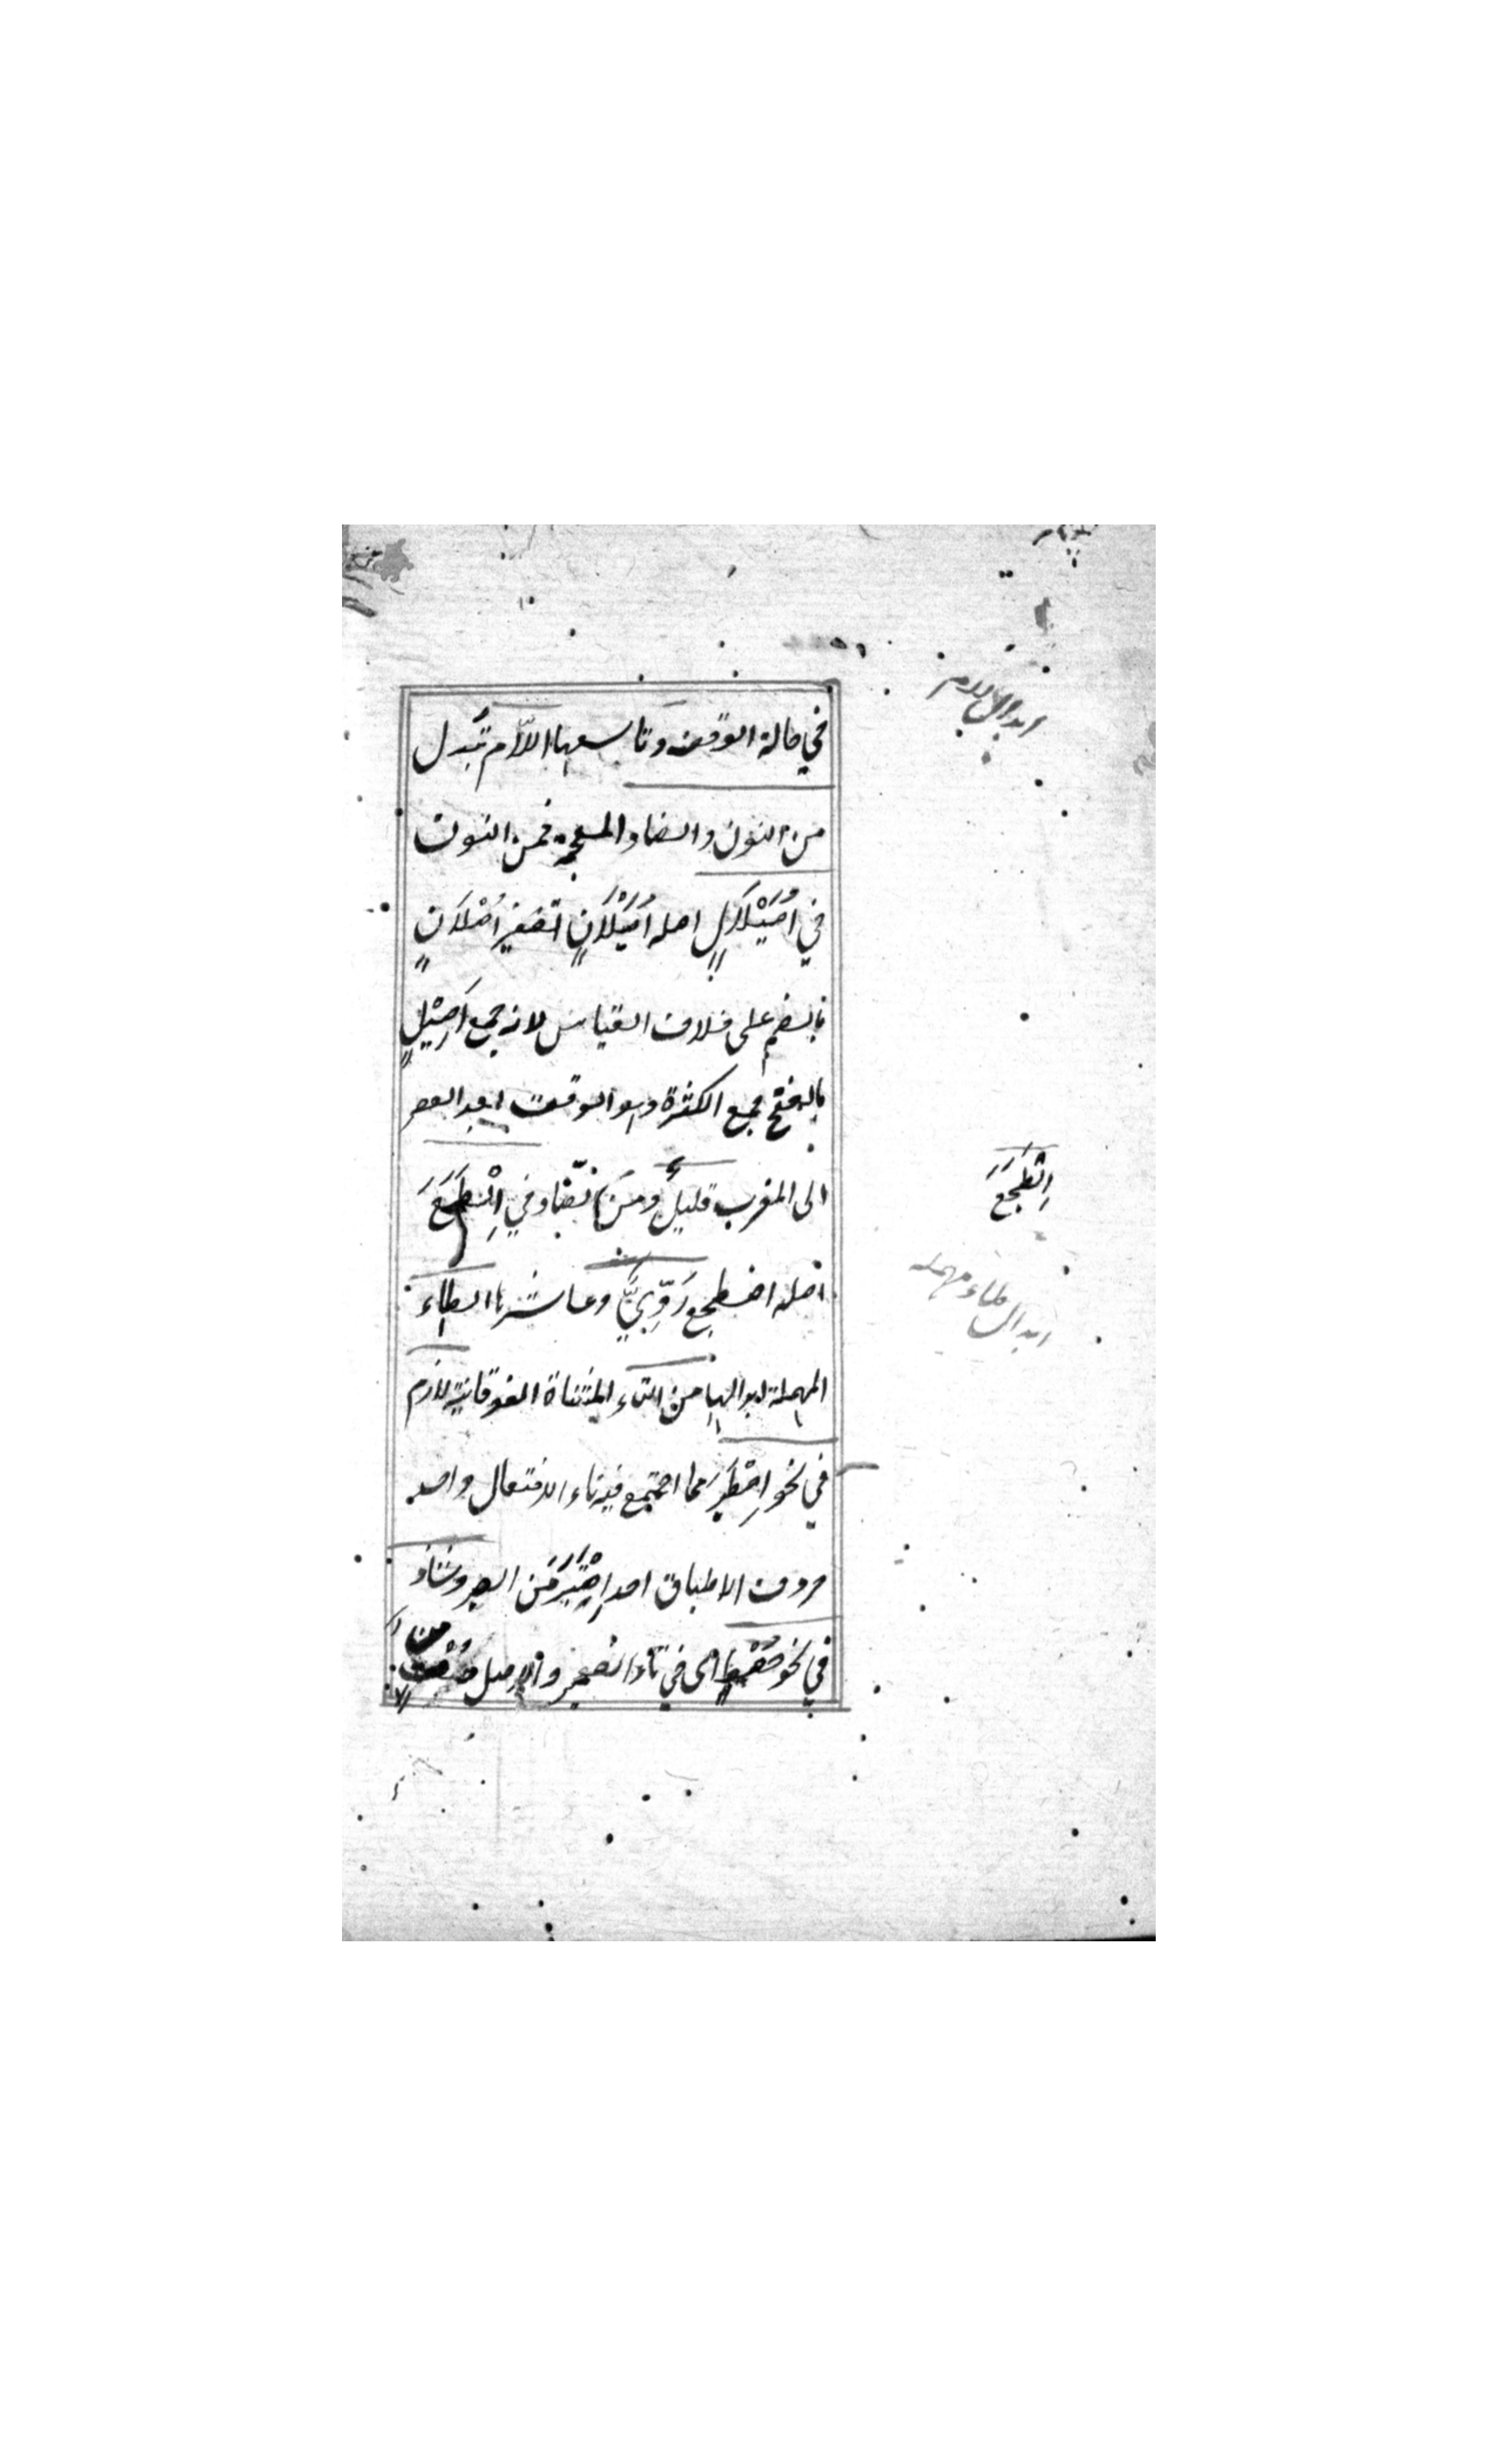 ابدال اللام
في حالة الوقف وتاسعها اللام تُبدل
من النون والضاد المعجمة فمن النون
في اُصَيْلَالٍ اصله اُصَيْلَانٍ تصغير اُصْلَانٍ
بالضم على خلاف القياس لانه جمع اَصِيْلٍ
بالفتح جمع الكثرة وهو الوقت بعد العصر
الى المغرب قليلٌ ومن الضاد في اِلْطَجَعَ
اصله اضطجع رَدِيٌّ وعاشرها الطاء
المهملة ابدالها من التاء المثناة الفوقانية لازم
في نحو اِصْطَبَرَ مما اجتمع فيه تاء الافتعال واحد
حروف الاطباق اصله اِصْتَبَرَ من الصبر وشاذ
في نحو حُصْطُ اى في تاء الضمير والاصل حُصْتُ من
اِلْطَجَعَ
ابدال طاء مهمله